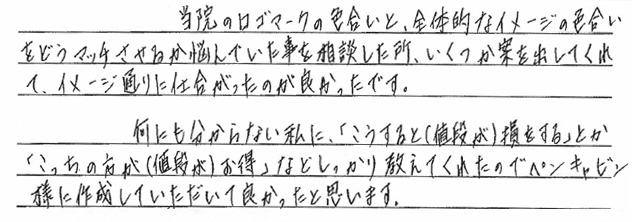 当院のロゴマークの色合いと、全体的なイメージの色合い
をどうマッチさせるか悩んでいた事を相談した所、いくつか案を出してくれ
て、イメージ通りに仕合がったのが良かったです。
何にも分からない私に、「こうすると(値段が)損をする」とか
「こっちの方が(値段が)お得」などしっかり教えてくれたのでペンキャビン
様に作成していただいて良かったと思います。